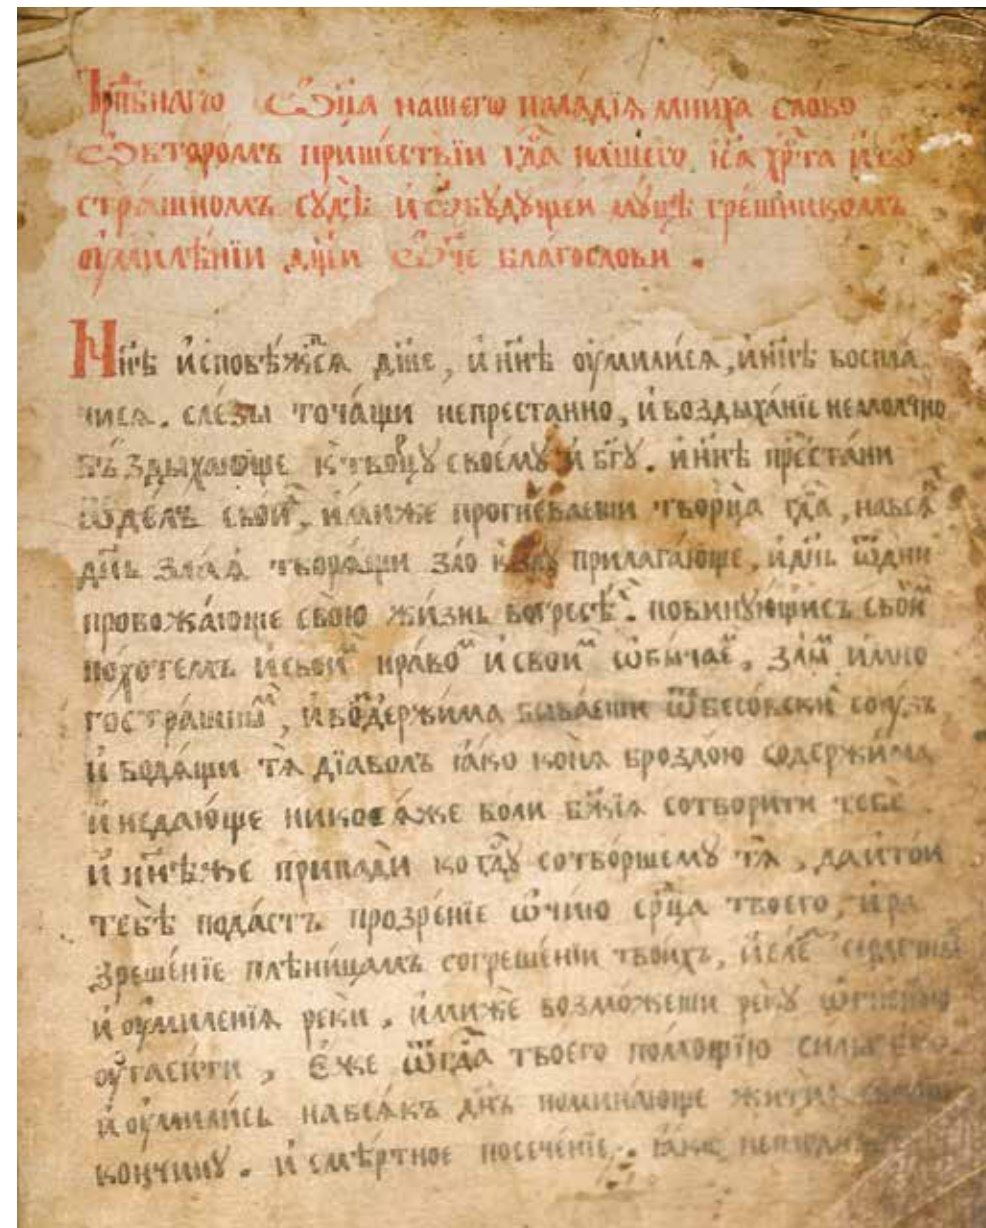 Прпⷣбнагѡ Ѻц҃а нашегѡ палладїѧ мниха слово
Ѻ второмъ пришествїи гдⷭ҇а нашегѡ і҆с҃а хрⷭ҇та и҆ ѡ
страшномъ сꙋдѣ и҆ ѡ бꙋдꙋщеи мꙋцѣ грѣшникомъ
ѹ҆милѣнїи дш҃и ѿч҃е благослови .
Нн҃ѣ и҆сповѣжⷣьсѧ дш҃е , и҆ нн҃ѣ ѹ҆милисѧ , и҆ нн҃ѣ воспла
чисѧ . слезы точащи непрестанно , и҆ воздыханїе немолчно
въздыхающе к творцꙋ своемꙋ и҆ бг҃ꙋ . и҆ нн҃ѣ престани
ѿ дѣлъ своиⷯ , и҆миже прогнѣваеши творца гдⷭ҇а , на всѧⷦ
дн҃ь злаѧ творѧщи зло къ злꙋ прилагающе , и҆ дн҃ь ѿ дни
провожающе свою жизнь во гресѣⷯ . повинꙋющись своиⷨ
похотемъ и҆ своиⷨ нравоⷨ и҆ своиⷨ ѡ҆бычаеⷨ . злыⷨ и҆ мно
гострашныⷨ , и҆ водержима бываеши ѿ бесовскиⷯ соꙋзъ
и҆ водѧщи тѧ дїаволъ ꙗ҆ко конѧ броздою содержима
и҆ не дающе никоеѧже воли бж҃їѧ сотворити тебе .
и҆ нн҃ѣ же припади ко гдⷭ҇ꙋ сотворшемꙋ тѧ , да и҆ той
тебѣ подастъ прозрѣнїе ѡ҆чию срⷣца твоего , и҆ ра
зрешенїе плѣницамъ согрешенїи твоихъ , и҆ слеⷥ
и҆ ѹ҆миленїѧ реки . и҆миже возможеши рекꙋ ѡ҆гненꙋю
ѹ҆гасити , є҆же ѿ гдⷭ҇а твоего помощїю силы є҆го
и҆ ѹ҆мились на всѧкъ дн҃ь поминающе житїѧ
кончинꙋ . и҆ смертное посеченїе . ꙗ҆ко